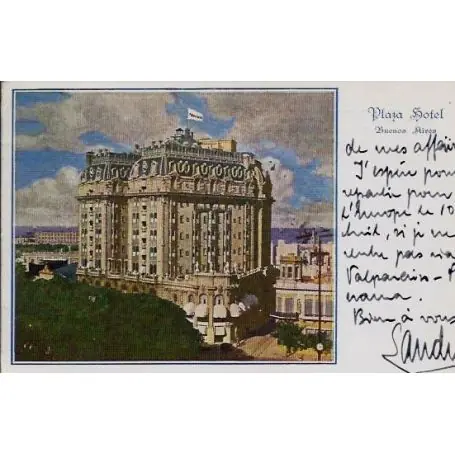 Plaza Hotel
Buenos Aires
de mes affair
J'espère pou
repartir pour
l'Europe le 10
chuit, si je ne
rentre pas via
Valparaiso - P
nama.
Bien à vous
Sandr